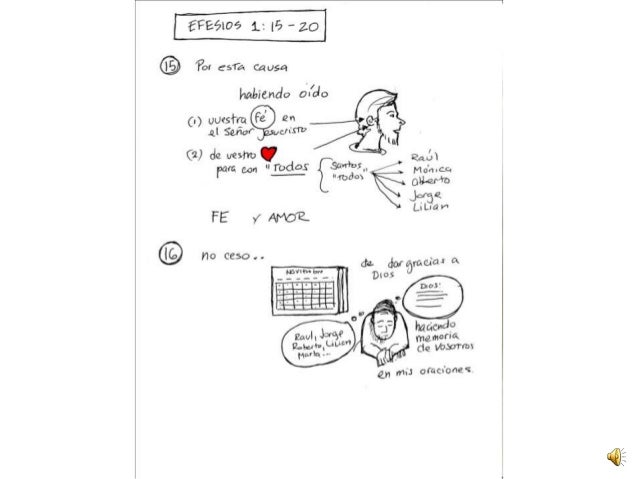 EFESIOS 1:15-20
(15) Por esta causa
habiendo oído
(1) vuestra fé en
el Señor Jesucristo
(2) de vestro ❤
para con "Todos { Santos
"Todos"
Raúl
Mónica
Alberto
Jorge
Lilian
FE Y AMOR
(16) no ceso..
Noviembre
de dar gracias a
Dios
Dios:
Raul, Jorge
Roberto, Lilian
Marta...
haciendo
memoria
de vosotros
en mis oraciones.